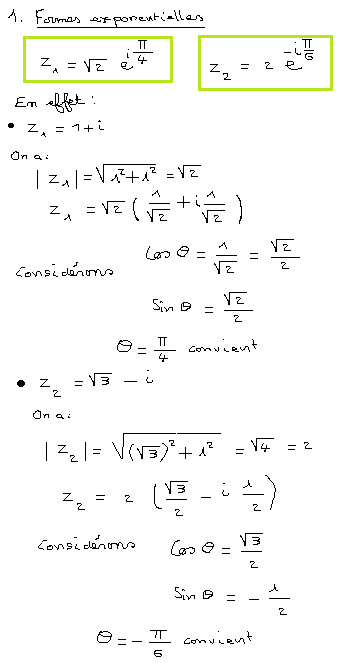 1. Formes exponentielles
z₁ = √2 e^{iπ/4}   z₂ = 2 e^{-iπ/6}
En effet :
• z₁ = 1+i
On a:
|z₁| = √(1²+1²) = √2
z₁ = √2 (1/√2 + i 1/√2)
Considérons cos θ = 1/√2 = √2/2
sin θ = √2/2
θ = π/4 convient
• z₂ = √3 - i
On a:
|z₂| = √((√3)²+1²) = √4 = 2
z₂ = 2 (√3/2 - i 1/2)
Considérons cos θ = √3/2
sin θ = - 1/2
θ = - π/6 convient